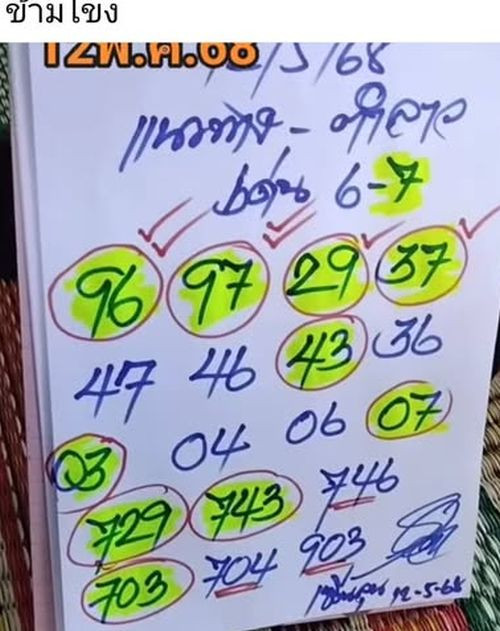 ข้ามโขง
12พ.ค.68
12/5/68
แนวทาง - คำลาว
เด่น 6-7
96 97 29 37
47 46 43 36
03 04 06 07
729 743 746
703 704 903
12-5-68